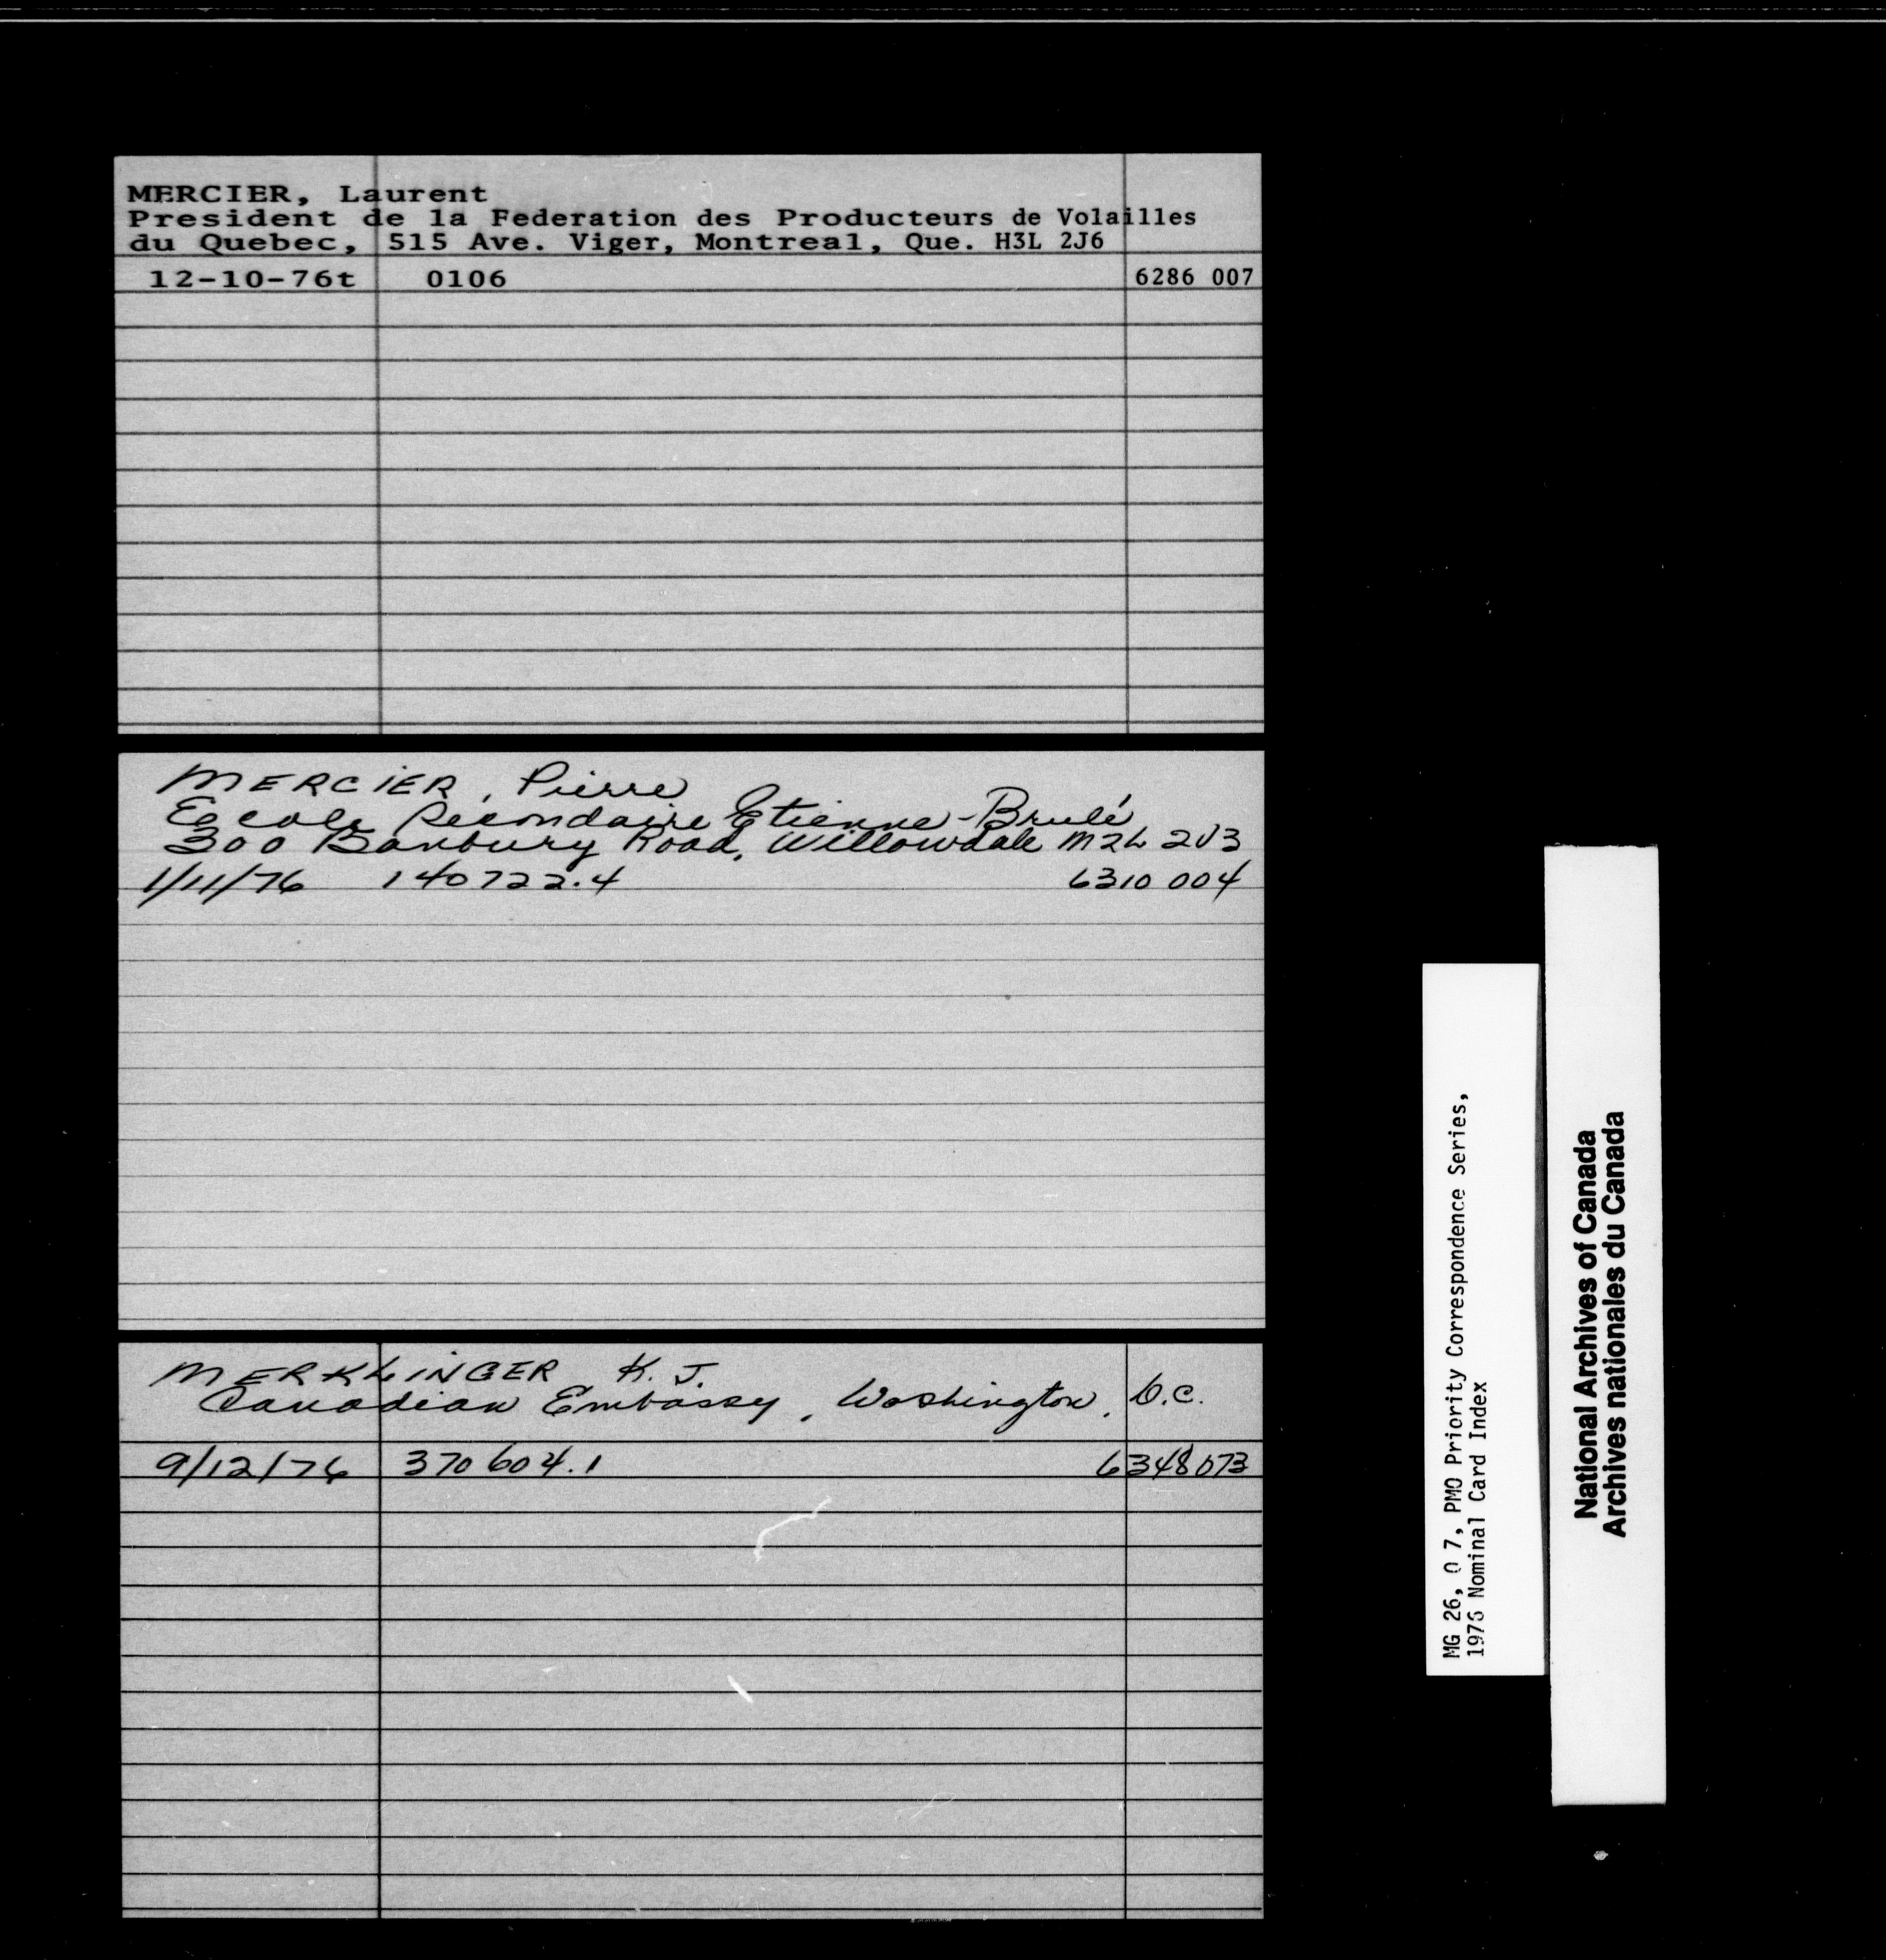 MERCIER, Laurent
President de la Federation des Producteurs de Volailles
du Quebec, 515 Ave. Viger, Montreal, Que. H3L 2J6
12-10-76t 0106 6286 007
MERCIER, Pierre
Ecole Secondaire Etienne-Brulé
300 Banbury Road, Willowdale M2L 2V3
1/11/76 140722.4 6310 004
MERKLINGER K. J.
Canadian Embassy, Washington, D.C.
9/12/76 370604.1 6348073
MG 26, O 7, PMO Priority Correspondence Series,
1976 Nominal Card Index
National Archives of Canada
Archives nationales du Canada